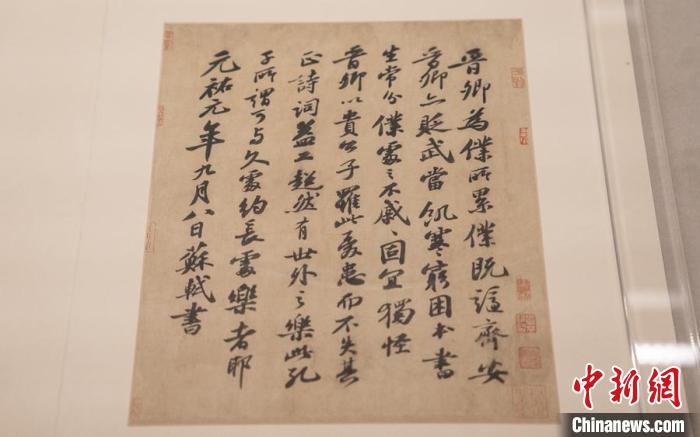 晉卿為僕所累僕既謫齊安
晉卿亦貶武當飢寒窮困本書
生常分僕處之不戚〻固宜獨怪
晉卿以貴公子罹此憂患而不失其
正詩詞益工超然有世外之樂此孔
子所謂可与久處約長處樂者耶
元祐元年九月八日蘇軾書
中新網
Chinanews.com